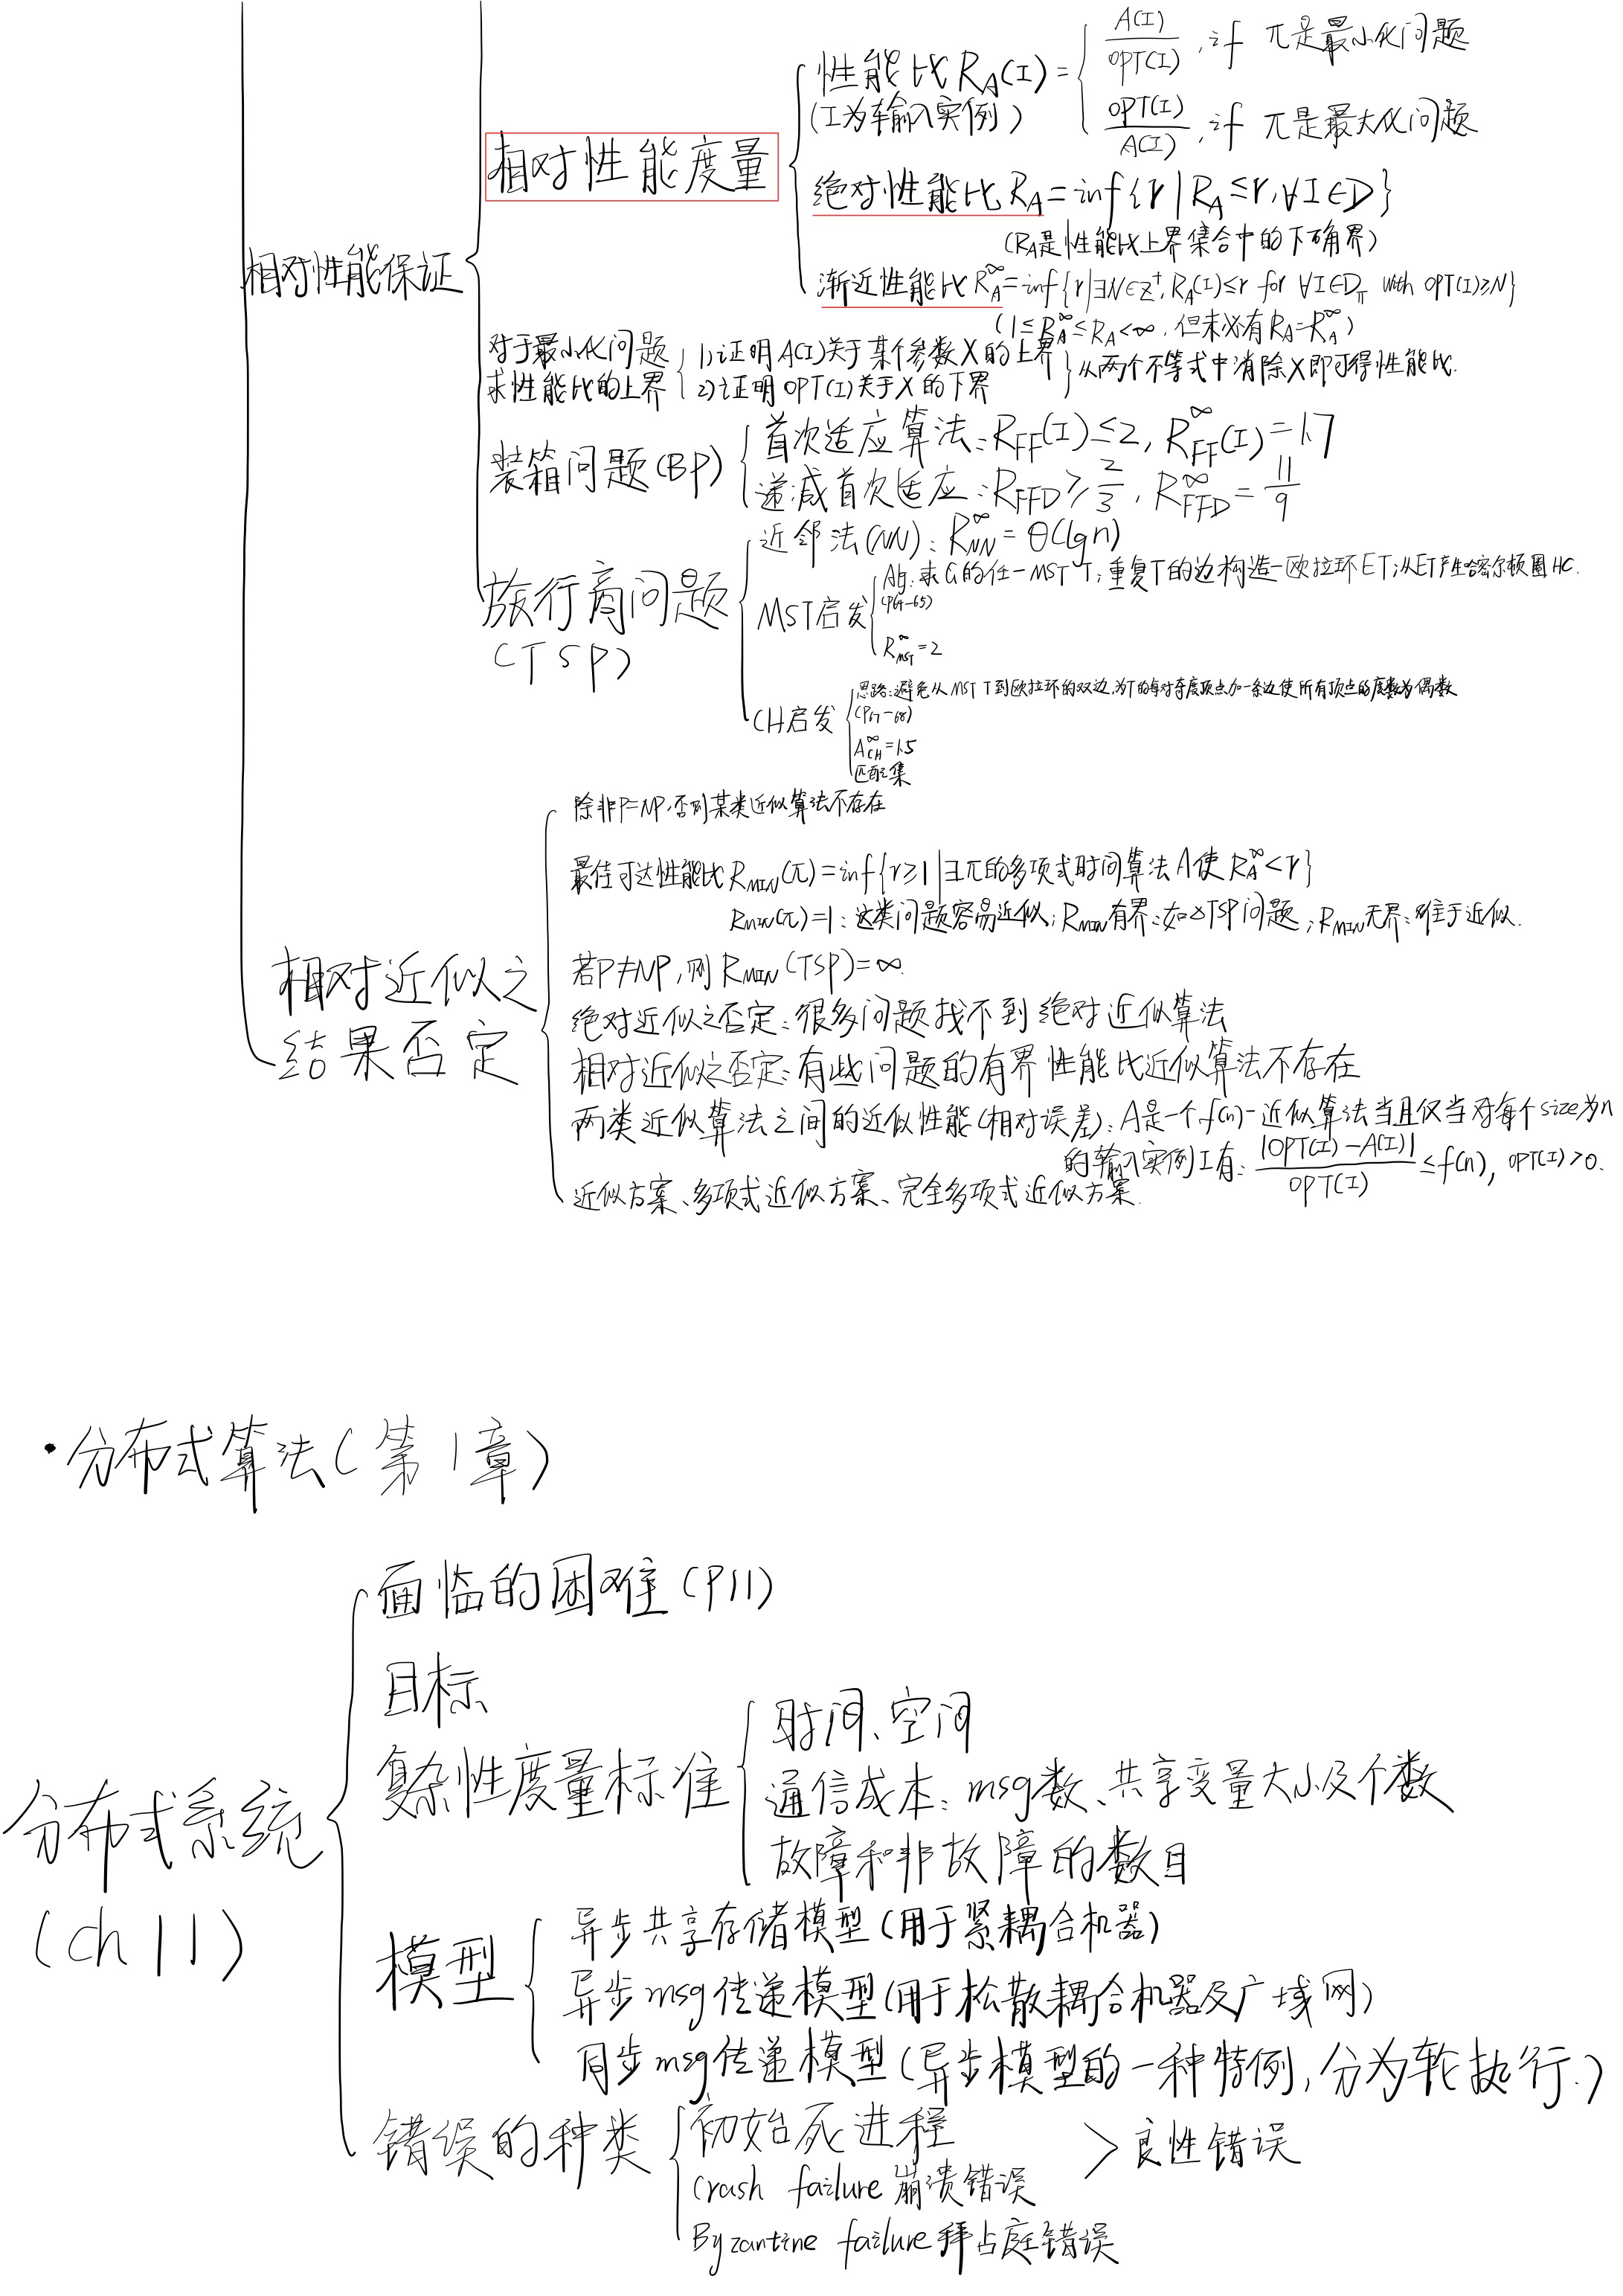 相对性能保证
相对性能度量
性能比 R_A(I) = { A(I)/OPT(I), if π是最小化问题
(I为输入实例) OPT(I)/A(I), if π是最大化问题
绝对性能比 R_A = inf{r | R_A ≤ r, ∀I∈D}
(R_A是性能比上界集合中的下确界)
渐近性能比 R_A^∞ = inf{r | ∃N∈Z⁺, R_A(I) ≤ r for ∀I∈D_π with OPT(I) ≥ N}
(1 ≤ R_A^∞ ≤ R_A < ∞, 但未必有 R_A = R_A^∞)
对于最小化问题
求性能比的上界
1) 证明A(I)关于某个参数X的上界
2) 证明OPT(I)关于X的下界
从两个不等式中消除X即可得性能比.
装箱问题(BP)
首次适应算法: R_FF(I) ≤ 2, R_FF^∞(I) = 1.7
递减首次适应: R_FFD ≥ 2/3, R_FFD^∞ = 11/9
旅行商问题
(TSP)
近邻法(NN): R_NN^∞ = θ(lgn)
MST启发
Alg: 求G的任一MST T; 重复T的边构造一欧拉环ET; 从ET产生哈密尔顿圈HC.
(P64-65)
R_MST^∞ = 2
CH启发
思路: 避免从MST T到欧拉环的双边, 为T的每对奇度顶点加一条边使所有顶点的度数为偶数
(P67-68)
A_CH^∞ = 1.5
匹配集
相对近似之
结果否定
除非P=NP, 否则某类近似算法不存在
最佳可达性能比 R_MIN(π) = inf{r≥1 | ∃π的多项式时间算法A使 R_A^∞ < r}
R_MIN(π)=1: 这类问题容易近似; R_MIN有界: 如ΔTSP问题; R_MIN无界: 难于近似.
若P≠NP, 则 R_MIN(TSP)=∞.
绝对近似之否定: 很多问题找不到绝对近似算法
相对近似之否定: 有些问题的有界性能比近似算法不存在
两类近似算法之间的近似性能(相对误差): A是一个f(n)-近似算法当且仅当对每个size为n
的输入实例I有: |OPT(I)-A(I)|/OPT(I) ≤ f(n), OPT(I)>0.
近似方案、多项式近似方案、完全多项式近似方案.
·分布式算法(第1章)
分布式系统
(ch11)
面临的困难(P11)
目标
复杂性度量标准
时间、空间
通信成本: msg数、共享变量大小及个数
故障和非故障的数目
模型
异步共享存储模型(用于紧耦合机器)
异步msg传递模型(用于松散耦合机器及广域网)
同步msg传递模型(异步模型的一种特例, 分为轮执行.)
错误的种类
初始死进程
crash failure 崩溃错误
> 良性错误
Byzantine failure 拜占庭错误